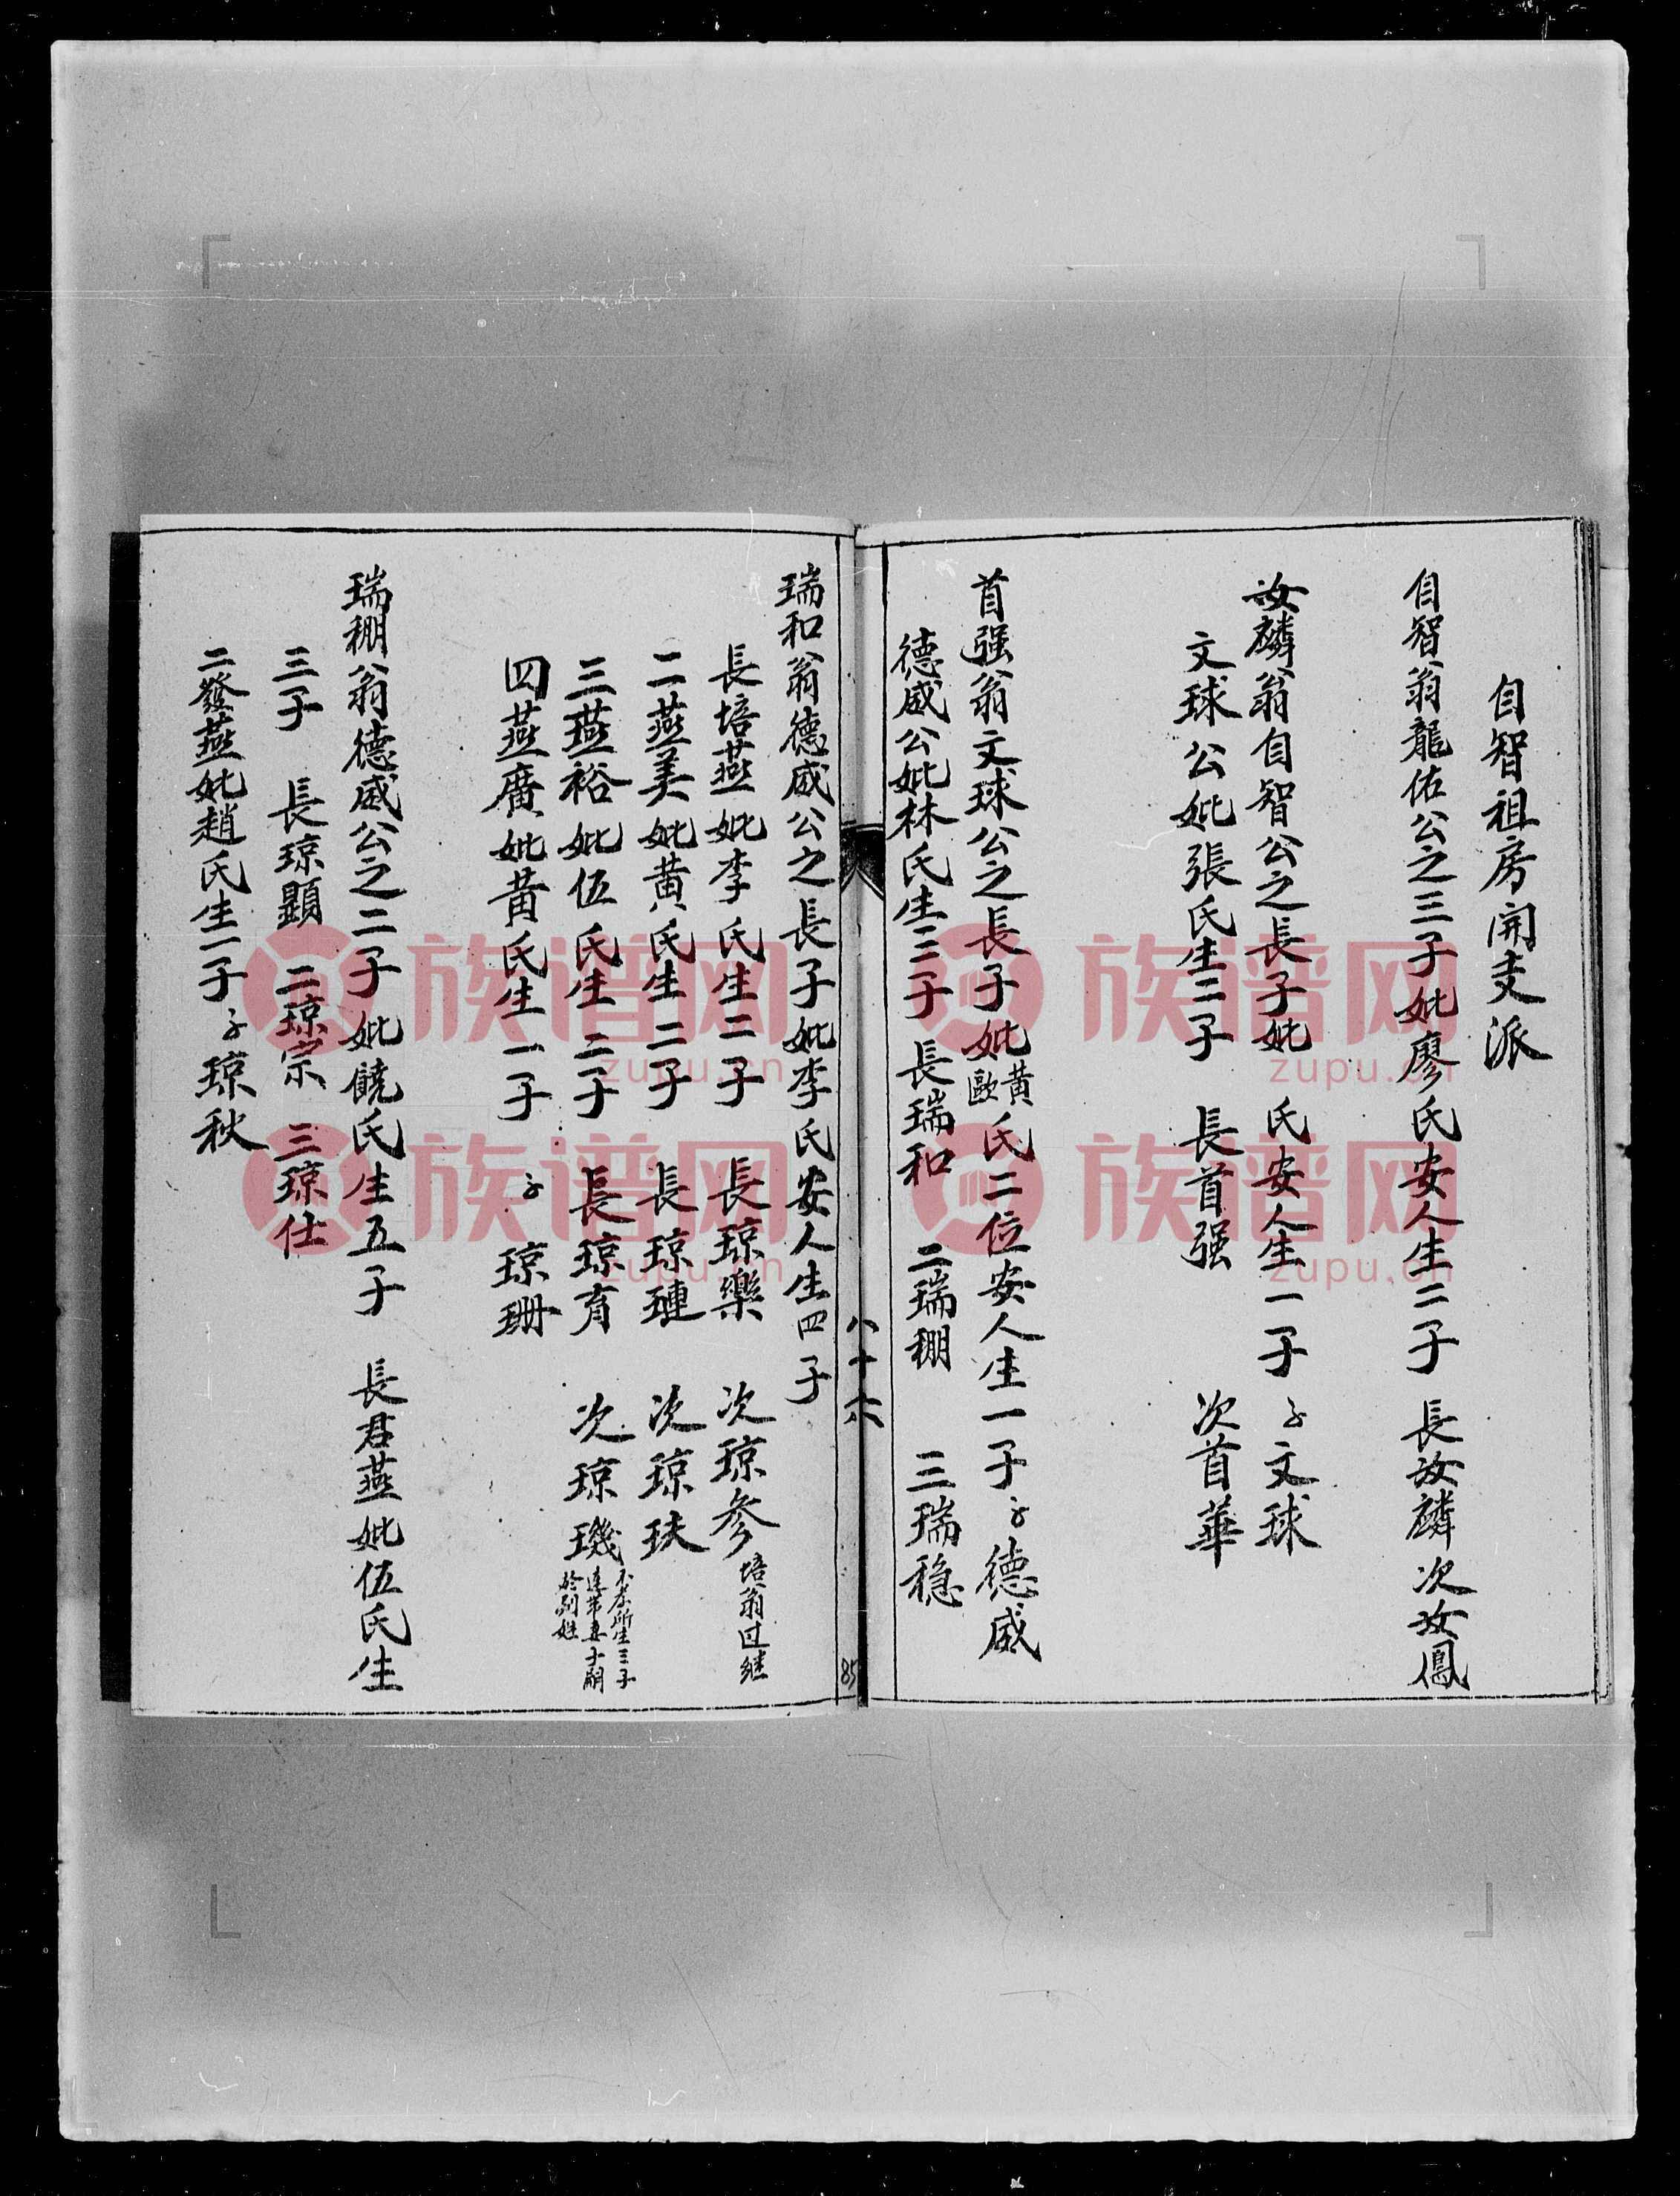 自智祖房開支派
自智翁龍佑公之三子妣廖氏安人生二子 長汝麟 次汝鳳
汝麟翁自智公之長子妣 氏安人生一子 子文球
文球公妣張氏生二子 長首强 次首華
首强翁文球公之長子妣黃歐氏二位安人生一子 子德威
德威公妣林氏生三子 長瑞和 二瑞稝 三瑞穩
八十六
85
瑞和翁德威公之長子妣李氏安人生四子
長培燕妣李氏生二子 長琼樂 次琼參 培翁过继
二燕美妣黃氏生二子 長琼璉 次琼玞
三燕裕妣伍氏生二子 長琼育 次琼璣 不孝所生三子
四燕廣妣黃氏生一子 子琼珊
瑞稝翁德威公之二子妣饒氏生五子 長君燕妣伍氏生
三子 長琼顯 二琼宗 三琼仕
二發燕妣趙氏生一子 子琼秋
族谱网
zupu.cn
族谱网
zupu.cn
族谱网
zupu.cn
族谱网
zupu.cn